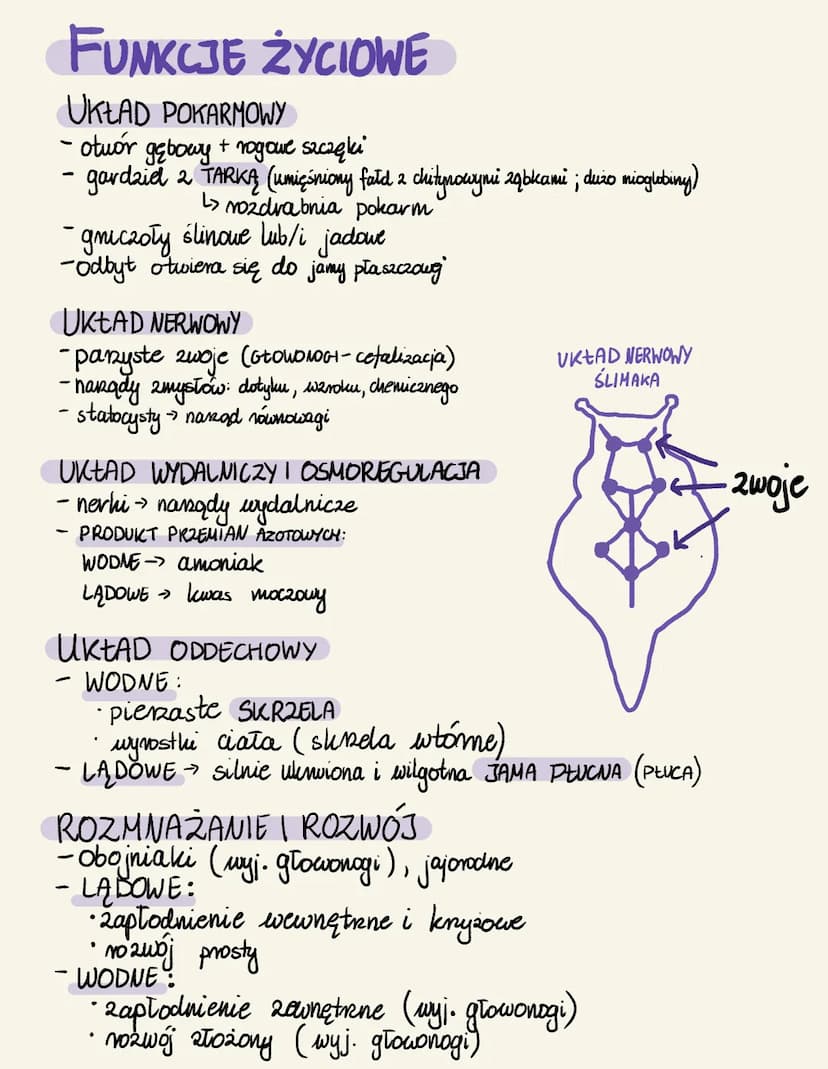 FUNKCJE ŻYCIOWE
UKŁAD POKARMOWY
- otwór gębowy + rogowe szczęki
- gardziel z TARKĄ (umięśniony fałd z chitynowymi ząbkami ; dużo mioglobiny)
↳ rozdrabnia pokarm
- gruczoły ślinowe lub/i jadowe
- odbyt otwiera się do jamy płaszczowej
UKŁAD NERWOWY
- parzyste zwoje (GŁOWONOGI - cefalizacja)
- narządy zmysłów: dotyku, wzroku, chemicznego
- statocysty → narząd równowagi
UKŁAD NERWOWY
ŚLIMAKA
zwoje
UKŁAD WYDALNICZY I OSMOREGULACJA
- nerki → narządy wydalnicze
- PRODUKT PRZEMIAN AZOTOWYCH:
WODNE → amoniak
LĄDOWE → kwas moczowy
UKŁAD ODDECHOWY
- WODNE:
· pierzaste SKRZELA
· wyrostki ciała (skrzela wtórne)
- LĄDOWE → silnie ukrwiona i wilgotna JAMA PŁUCNA (PŁUCA)
ROZMNAŻANIE I ROZWÓJ
- obojniaki (wyj. głowonogi), jajorodne
- LĄDOWE:
· zapłodnienie wewnętrzne i krzyżowe
· rozwój prosty
- WODNE:
· zapłodnienie zewnętrzne (wyj. głowonogi)
· rozwój złożony (wyj. głowonogi)